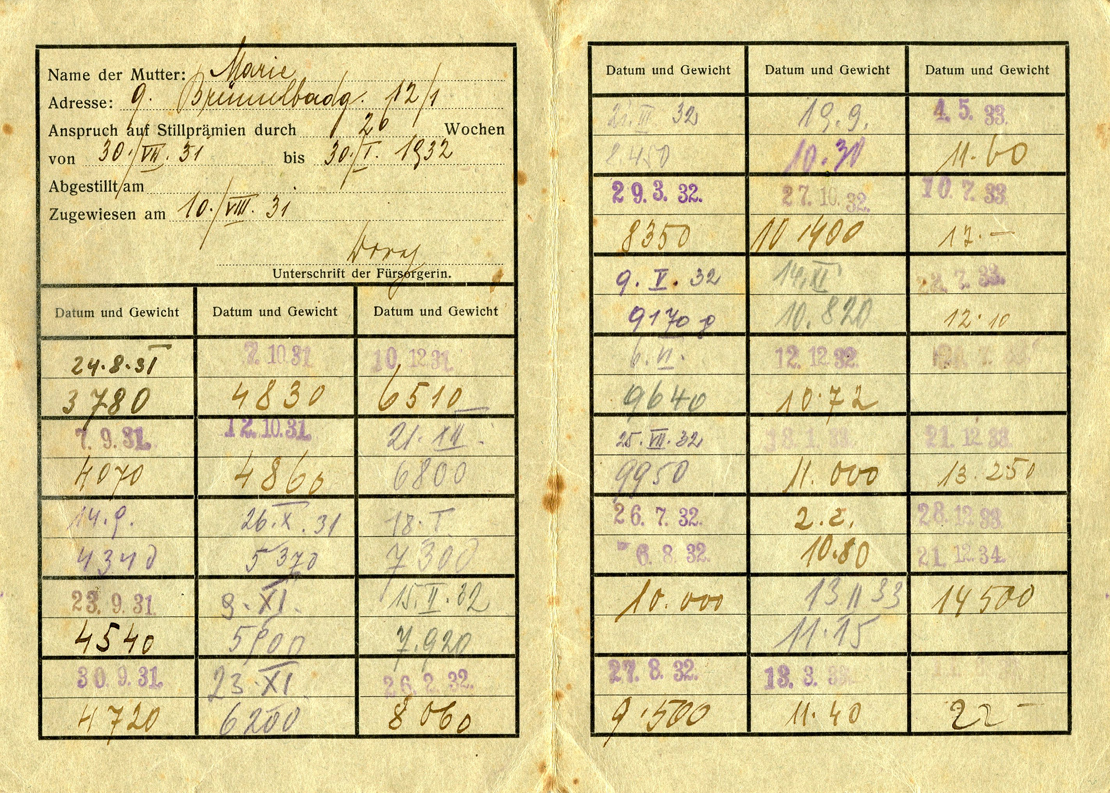 Name der Mutter: Marie
Adresse: 9. 12/1
Anspruch auf Stillprämien durch 26 Wochen
von 30./VII. 31 bis 30./I. 1932
Abgestillt am
Zugewiesen am 10./VIII. 31
Unterschrift der Fürsorgerin.
Datum und Gewicht Datum und Gewicht Datum und Gewicht
24.8.31 7.10.31 10.12.31.
3780 4830 6510
7.9.31. 12.10.31. 21.XII.
4070 4860 6800
14.9. 26.X.31 18.I.
4340 5370 7300
23.9.31. 9.XI. 15.II.32
4540 5900 7.920
30.9.31. 23.XI. 26.2.32.
4720 6200 8060
Datum und Gewicht Datum und Gewicht Datum und Gewicht
32 19.9. 4.5.33.
8.450 10.30 11.60
29.3.32. 27.10.32. 10.7.33
8350 10400 12.—
9.V.32 14.XI 7.33.
9170 g 10.820 12.10
6.VI. 12.12.32.
9640 10.72
25.VII.32 21.12.33
9950 11.000 13.250
26.7.32. 2.2. 28.12.33.
6.8.32. 10.80 21.12.34.
10.000 13 II 33 14500
11.15
27.8.32. 13.3.33.
9.500 11.40 22—